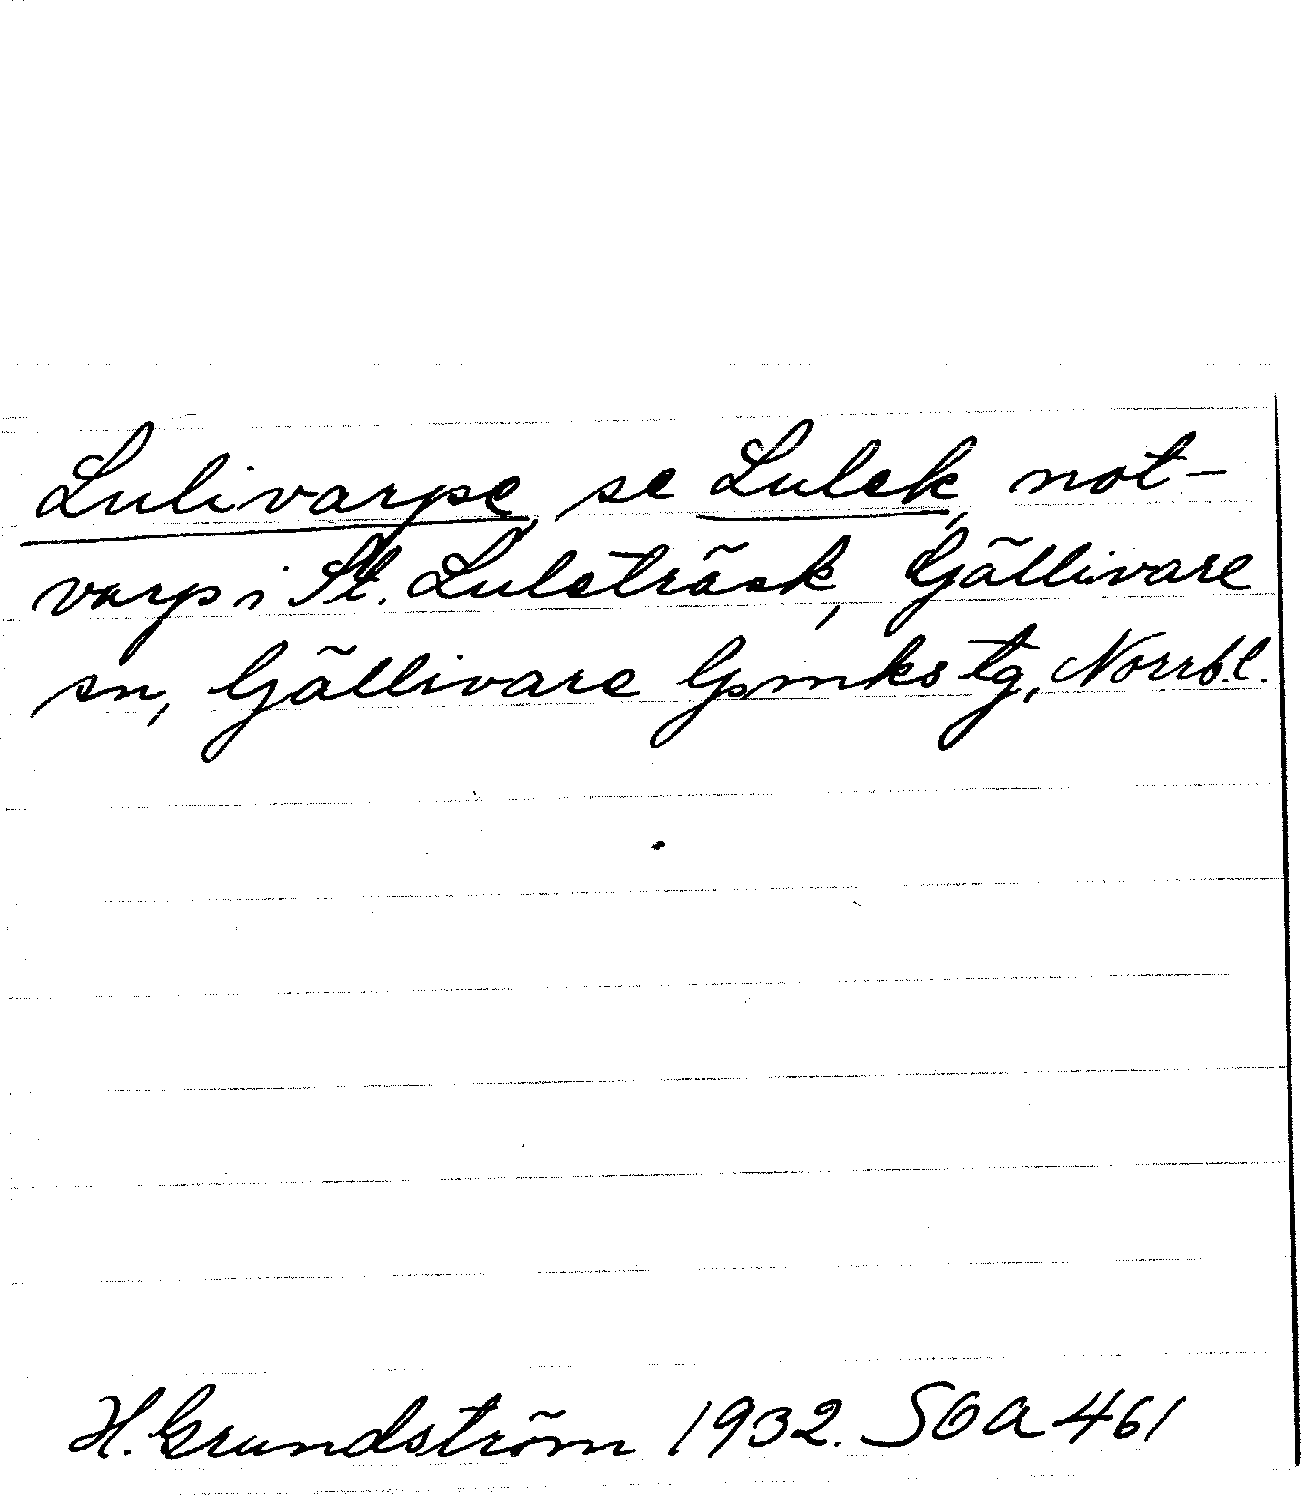 Lulivarpe, se Lulek, not-
varp i St. Luleträsk, Gällivare
sn, Gällivare lpmks tg, Norrb.l.
H. Grundström 1932. SOA 461